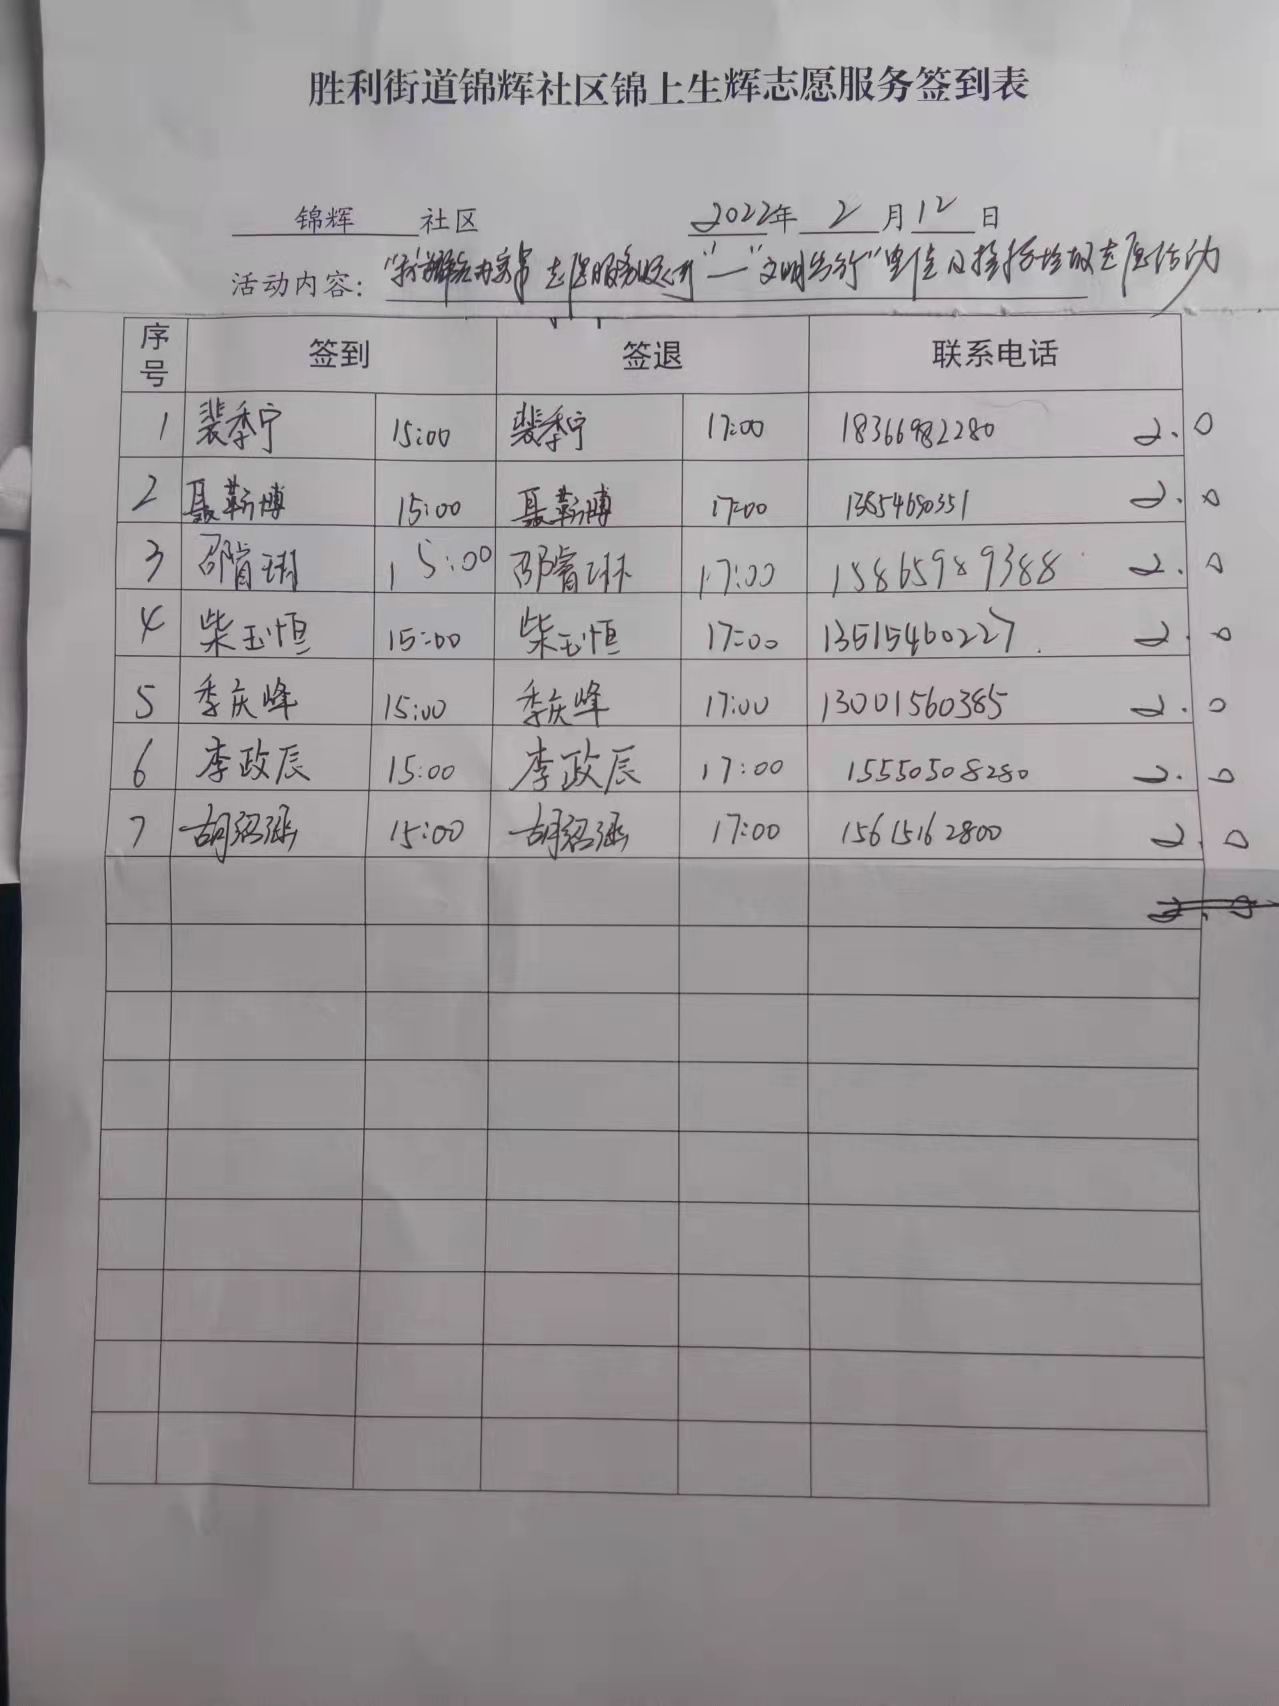 胜利街道锦辉社区锦上生辉志愿服务签到表
锦辉 社区 2022年 2 月 12 日
活动内容: "我 志愿服务 "—"文明出行"宣传及捡拾垃圾志愿活动
序号 签到 签退 联系电话
1 裴季宁 15:00 裴季宁 17:00 18366982280 2.0
2 聂新博 15:00 聂新博 17:00 13854680351 2.0
3 邵睿琳 15:00 邵睿琳 17:00 15865989388 2.0
4 柴玉恒 15:00 柴玉恒 17:00 13515460227 2.0
5 季庆峰 15:00 季庆峰 17:00 13001560385 2.0
6 李政辰 15:00 李政辰 17:00 15550508280 2.0
7 胡绍涵 15:00 胡绍涵 17:00 15615162800 2.0
2.0